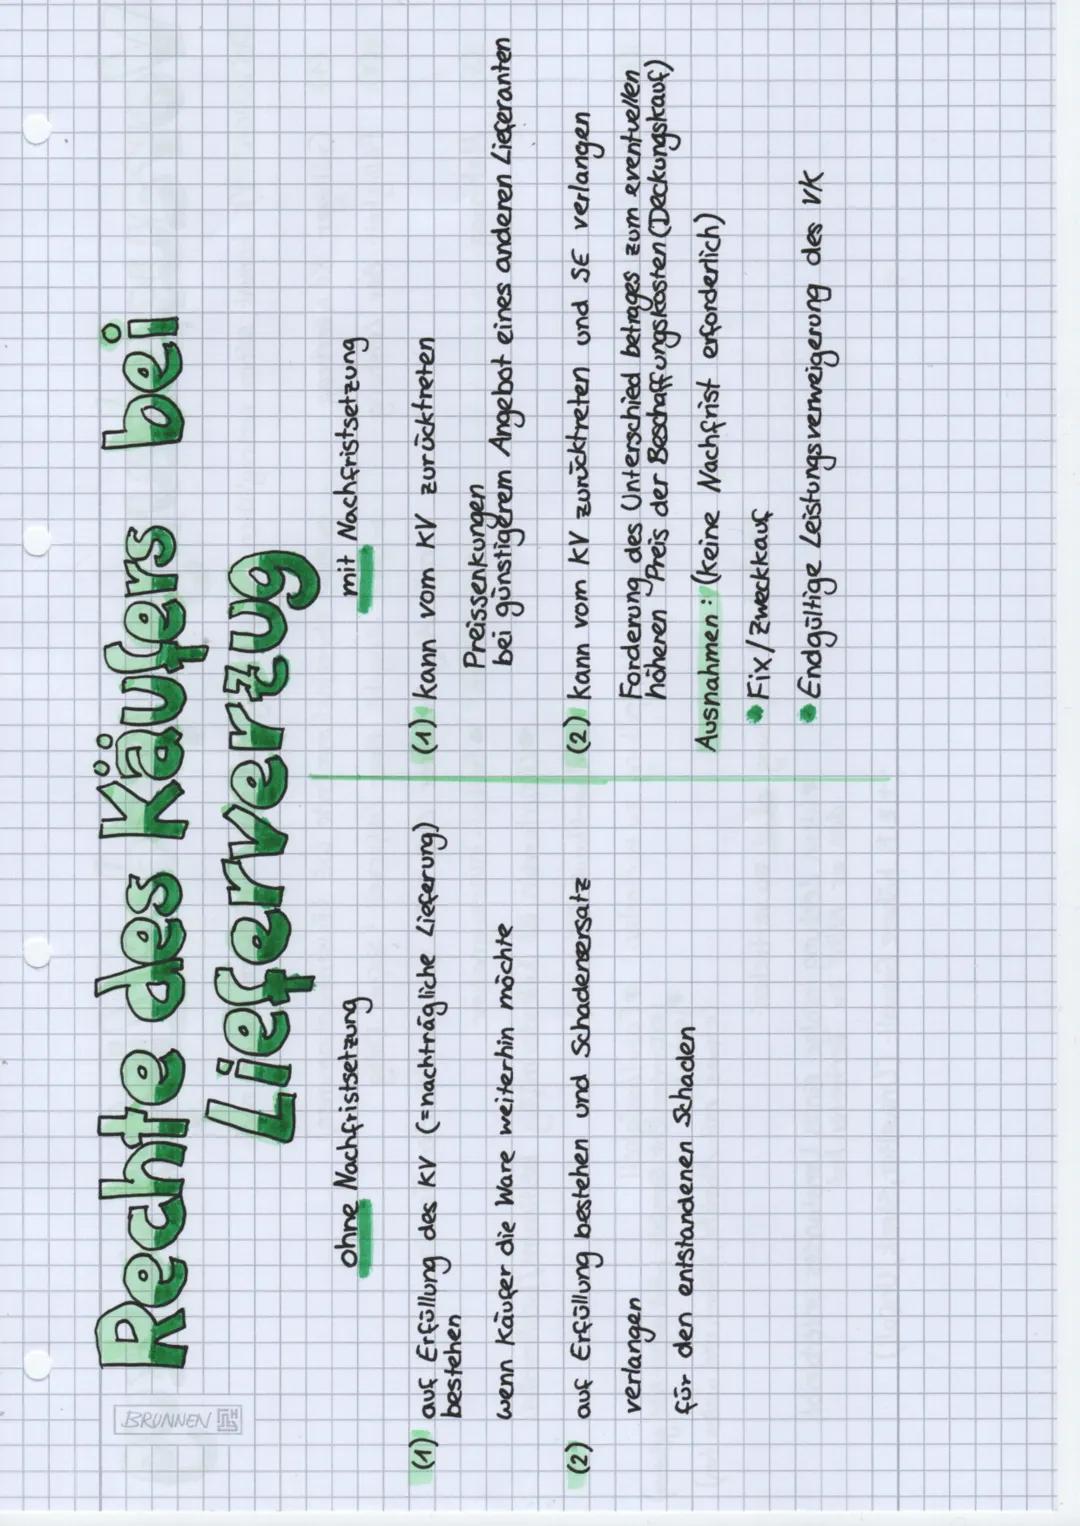 BRUNNEN
Rechte des Käufers bei
Lieferverzug
ohne Nachfristsetzung
(1) auf Erfüllung des KV (=nachträgliche Lieferung)
bestehen
wenn Käufer die Ware weiterhin möchte
(2) auf Erfüllung bestehen und Schadenersatz
verlangen
für den entstandenen Schaden
mit Nachfristsetzung
(1) kann vom KV zurücktreten
Preissenkungen
bei günstigerem Angebot eines anderen Lieferanten
(2) kann vom KV zurücktreten und SE verlangen
Forderung des Unterschied betrages zum eventuellen
höheren Preis der Beschaffungskosten (Deckungskauf)
Ausnahmen: (keine Nachfrist erforderlich)
• Fix/Zweckkauf
• Endgültige Leistungsverweigerung des VK